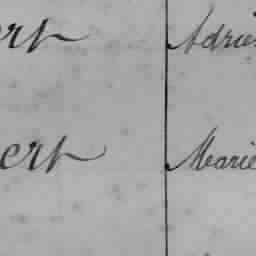 ert Adrie
ert Marie